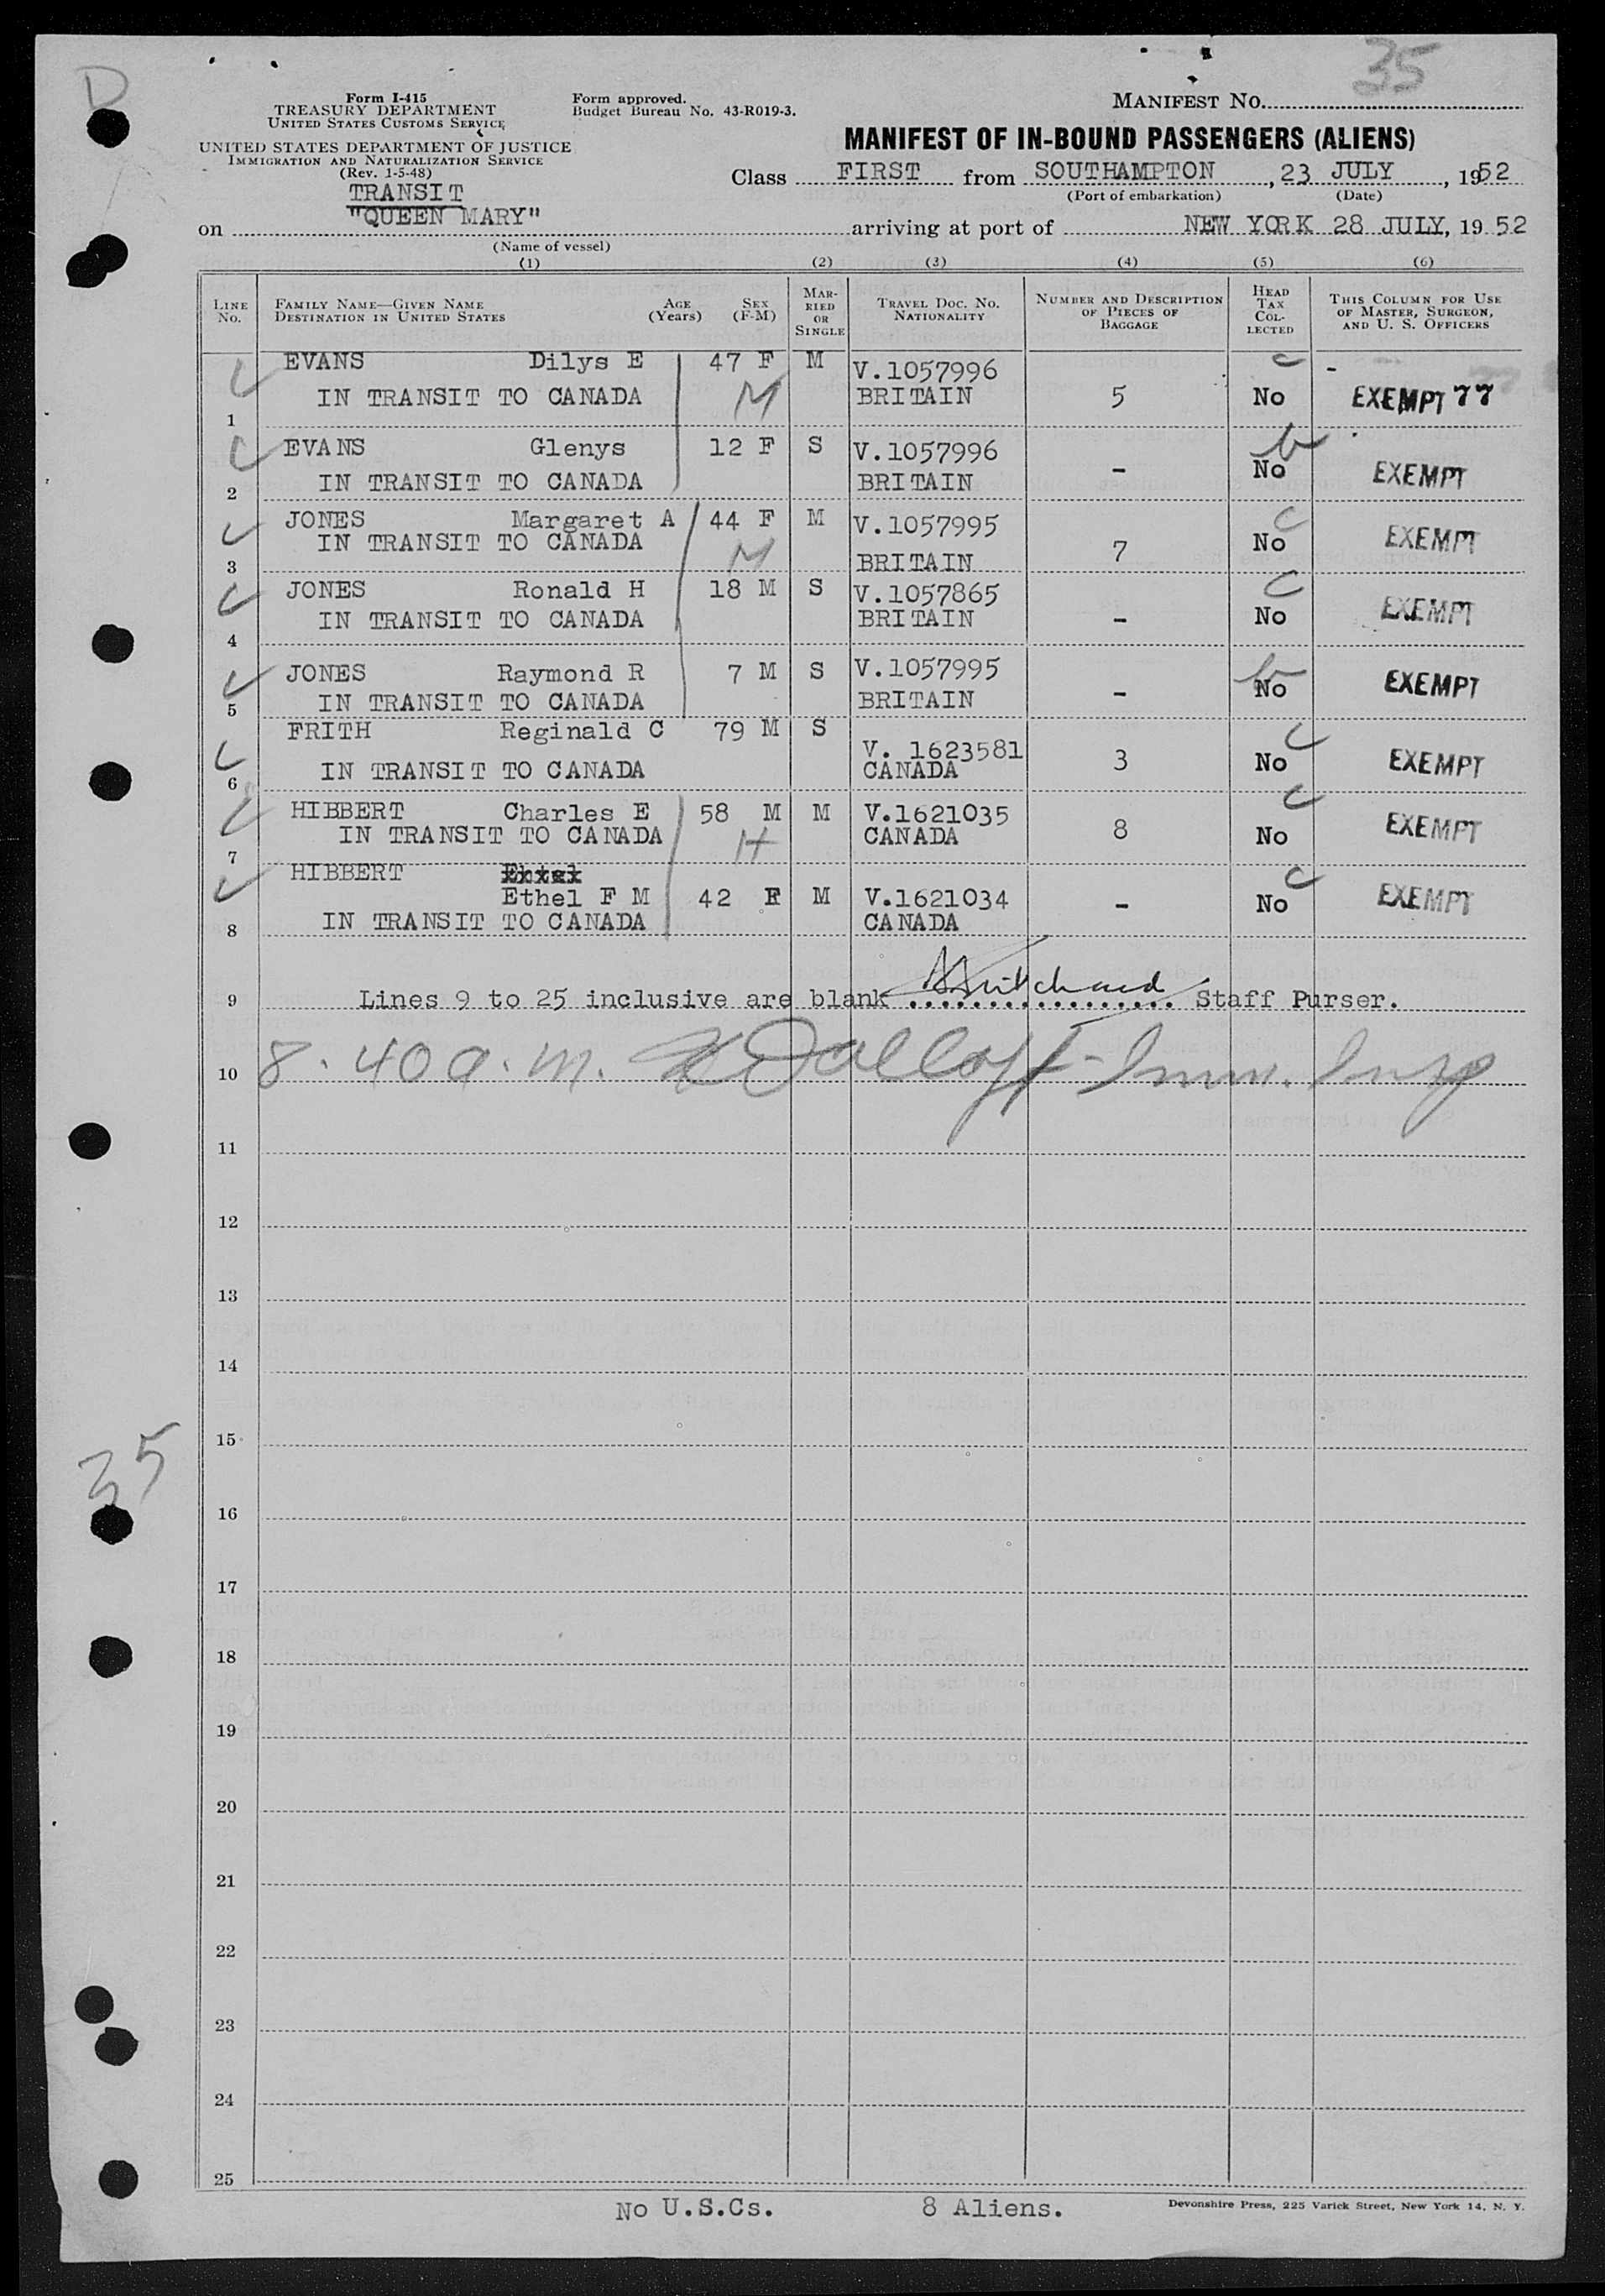 D
35
Form I-415
TREASURY DEPARTMENT
UNITED STATES CUSTOMS SERVICE
Form approved.
Budget Bureau No. 43-R019-3.
MANIFEST NO.
UNITED STATES DEPARTMENT OF JUSTICE
IMMIGRATION AND NATURALIZATION SERVICE
(Rev. 1-5-48)
MANIFEST OF IN-BOUND PASSENGERS (ALIENS)
Class FIRST from SOUTHAMPTON, 23 JULY, 1952
(Port of embarkation) (Date)
TRANSIT
on "QUEEN MARY" arriving at port of NEW YORK 28 JULY, 1952
(Name of vessel)
(1) (2) (3) (4) (5) (6)
LINE NO. FAMILY NAME—GIVEN NAME DESTINATION IN UNITED STATES AGE (Years) SEX (F-M) MARRIED OR SINGLE TRAVEL DOC. NO. NATIONALITY NUMBER AND DESCRIPTION OF PIECES OF BAGGAGE HEAD TAX COLLECTED THIS COLUMN FOR USE OF MASTER, SURGEON, AND U. S. OFFICERS
EVANS Dilys E 47 F M V.1057996 c
1 IN TRANSIT TO CANADA M BRITAIN 5 No EXEMPT 77
EVANS Glenys 12 F S V.1057996 b
2 IN TRANSIT TO CANADA BRITAIN - No EXEMPT
JONES Margaret A 44 F M V.1057995 c
3 IN TRANSIT TO CANADA M BRITAIN 7 No EXEMPT
JONES Ronald H 18 M S V.1057865 c
4 IN TRANSIT TO CANADA BRITAIN - No EXEMPT
JONES Raymond R 7 M S V.1057995 b
5 IN TRANSIT TO CANADA BRITAIN - No EXEMPT
FRITH Reginald C 79 M S V. 1623581 c
6 IN TRANSIT TO CANADA CANADA 3 No EXEMPT
HIBBERT Charles E 58 M M V.1621035 c
7 IN TRANSIT TO CANADA H CANADA 8 No EXEMPT
HIBBERT c
Ethel F M 42 F M V.1621034 - No EXEMPT
8 IN TRANSIT TO CANADA CANADA
9 Lines 9 to 25 inclusive are blank Pritchard Staff Purser.
10 8.40 a.m. Imm. Insp
11
12
13
14
15
35
16
17
18
19
20
21
22
23
24
25
No U.S.Cs. 8 Aliens.
Devonshire Press, 225 Varick Street, New York 14, N. Y.